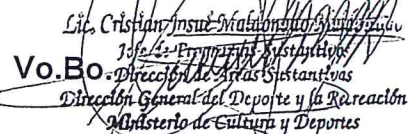 Lic. Cristian Josué Maldonado
Jefe de Programas Sustantivos
Vo.Bo. Dirección de Áreas Sustantivas
Dirección General del Deporte y la Recreación
Ministerio de Cultura y Deportes